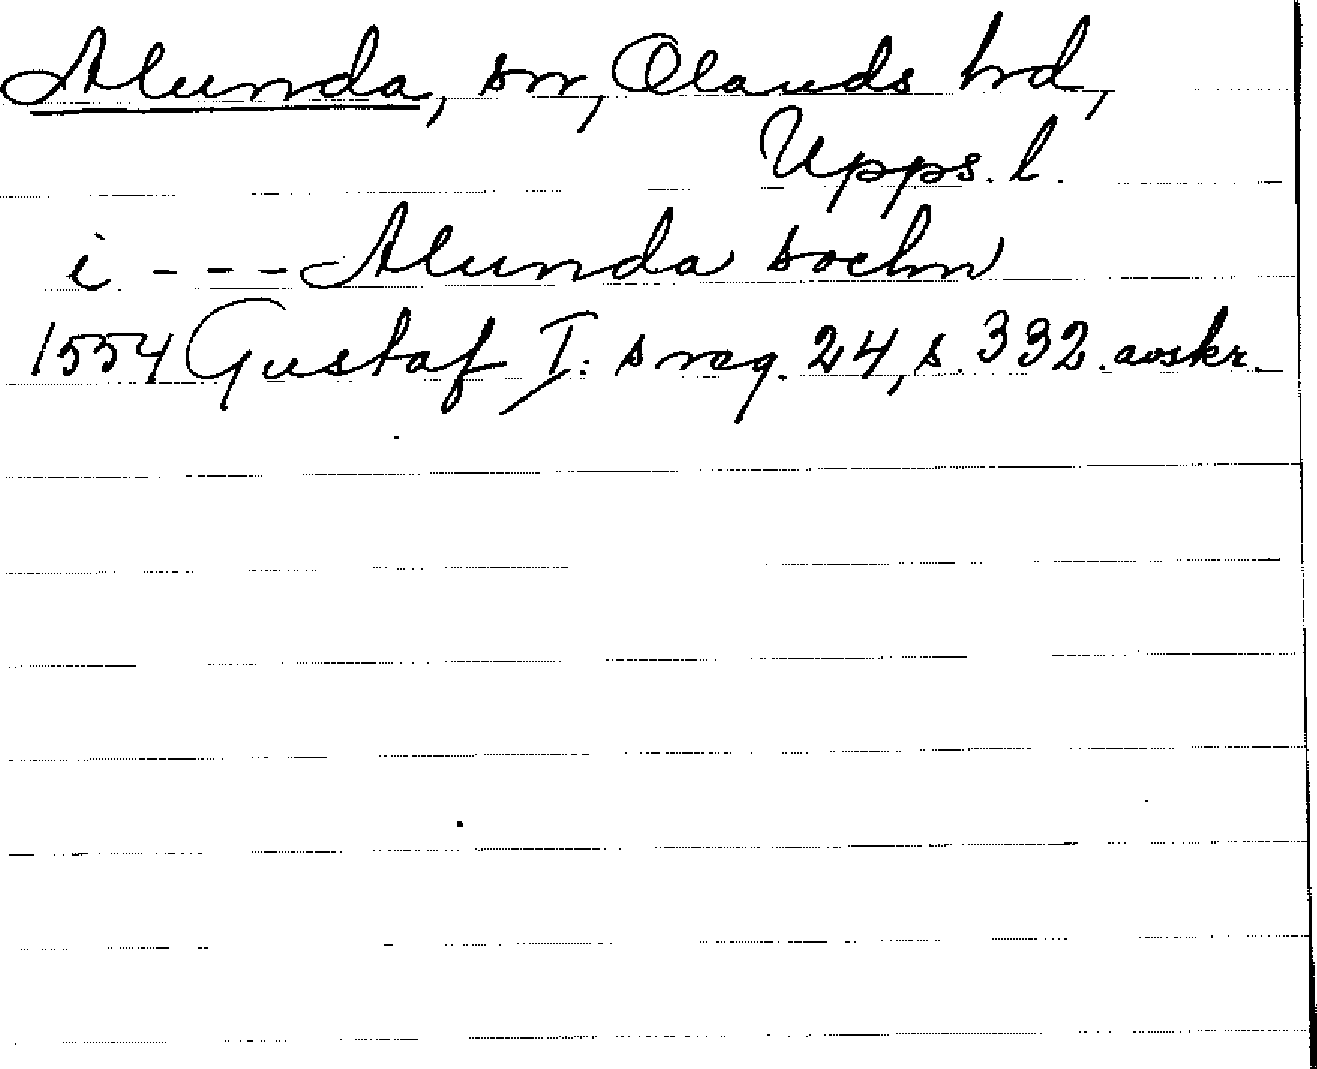 Alunda, sn, Olands hd,
Upps. l.
i --- Alunda sochn
1554 Gustaf I:s reg. 24, s. 332. avskr.